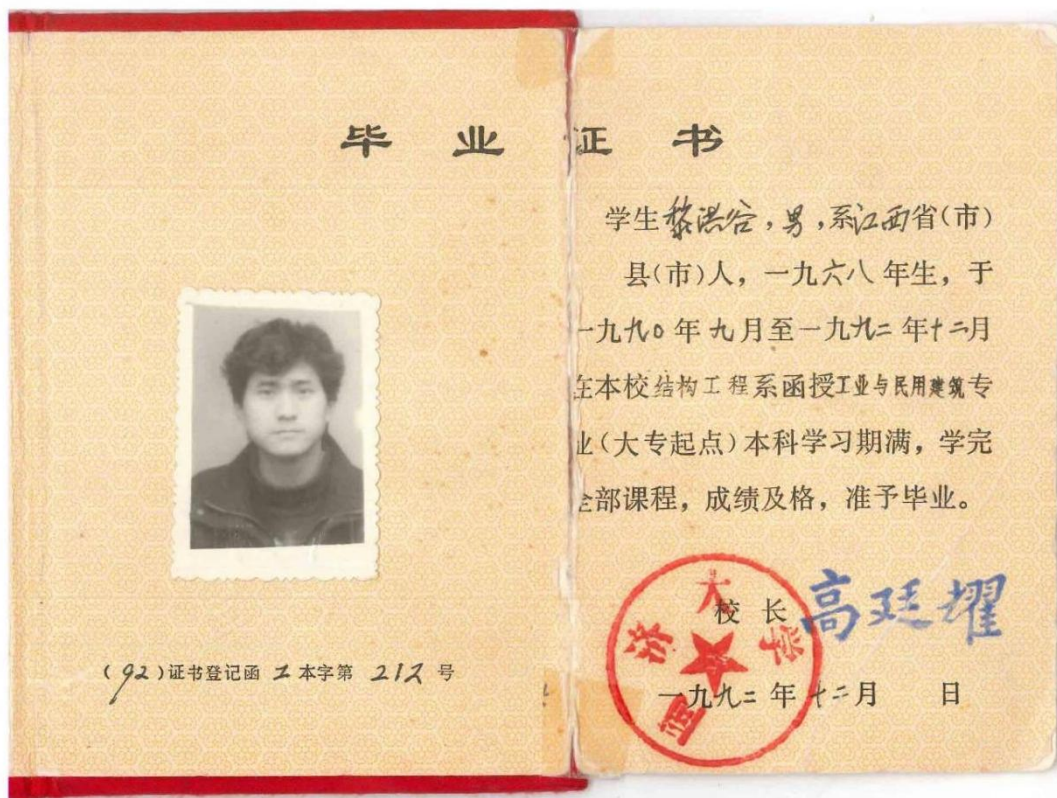 毕业证书
学生黎洪谷，男，系江西省(市)
县(市)人，一九六八年生，于
一九九0年九月至一九九二年十二月
在本校结构工程系函授工业与民用建筑专
业(大专起点)本科学习期满，学完
全部课程，成绩及格，准予毕业。
校长 高廷耀
同济大学
一九九二年十二月 日
(92)证书登记函工本字第 212 号